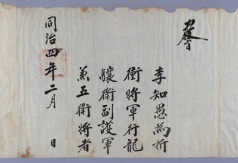 李知愚為折
衝將軍行龍
驤衛副護軍
兼五衛將者
同治四年二月 日